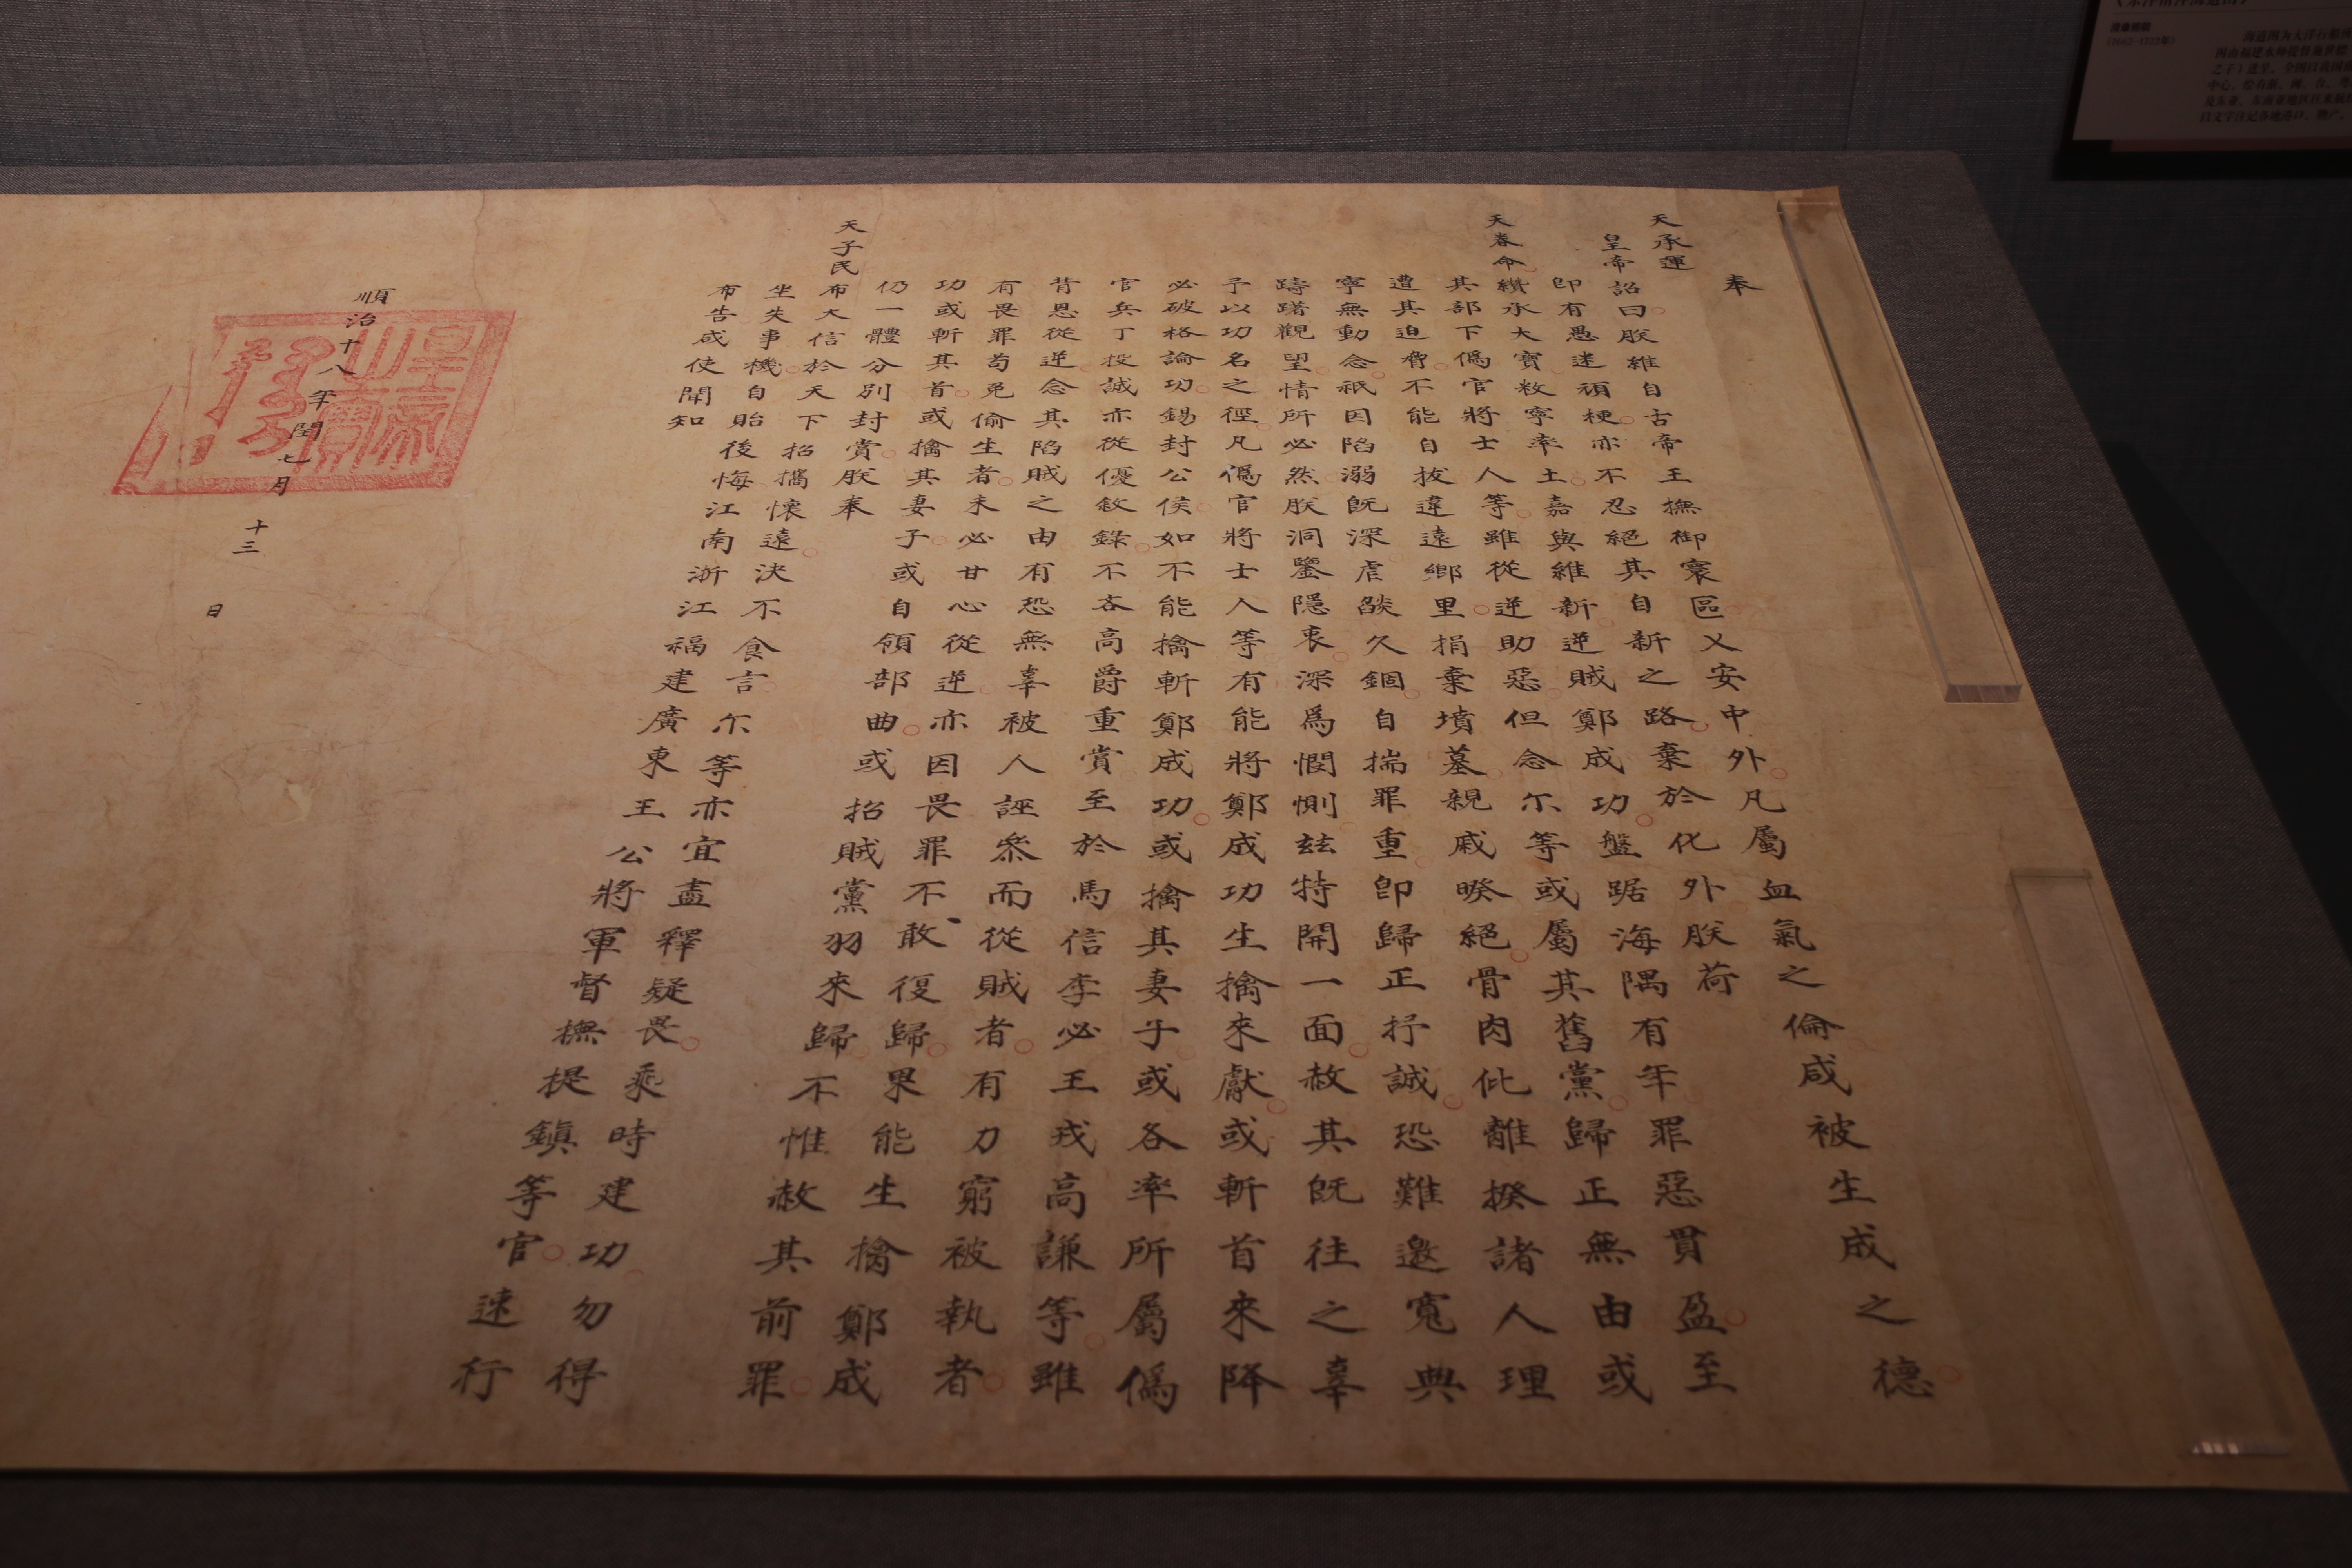 奉
天承運
皇帝詔曰朕維自古帝王撫御寰區乂安中外凡屬血氣之倫咸被生成之德
即有愚迷頑梗亦不忍絕其自新之路棄於化外朕荷
天眷命纘承大寶敉寧率土嘉與維新逆賊鄭成功盤踞海隅有年罪惡貫盈至
其部下僞官將士人等雖從逆助惡但念尔等或屬其舊黨歸正無由或
遭其迫脅不能自拔違遠鄉里捐棄墳墓親戚暌絕骨肉仳離揆諸人理
寧無動念祇因陷溺既深虐燄久錮自揣罪重即歸正抒誠恐難邀寬典
躊躇觀望情所必然朕洞鑒隱衷深爲憫惻玆特開一面赦其既往之辜
予以功名之徑凡僞官將士人等有能將鄭成功生擒來獻或斬首來降
必破格論功錫封公侯如不能擒斬鄭成功或擒其妻子或各率所屬僞
官兵丁投誠亦從優敘錄不吝高爵重賞至於馬信李必王戎高謙等雖
背恩從逆念其陷賊之由有恐無辜被人誣叅而從賊者有力窮被執者
有畏罪苟免偷生者未必甘心從逆亦因畏罪不敢復歸果能生擒鄭成
功或斬其首或擒其妻子或自領部曲或招賊黨羽來歸不惟赦其前罪
仍一體分別封賞朕奉
天子民布大信於天下招攜懷遠決不食言尔等亦宜盡釋疑畏乘時建功勿得
坐失事機自貽後悔江南浙江福建廣東王公將軍督撫提鎮等官速行
布告咸使聞知
順治十八年閏七月十三日
皇帝之寶